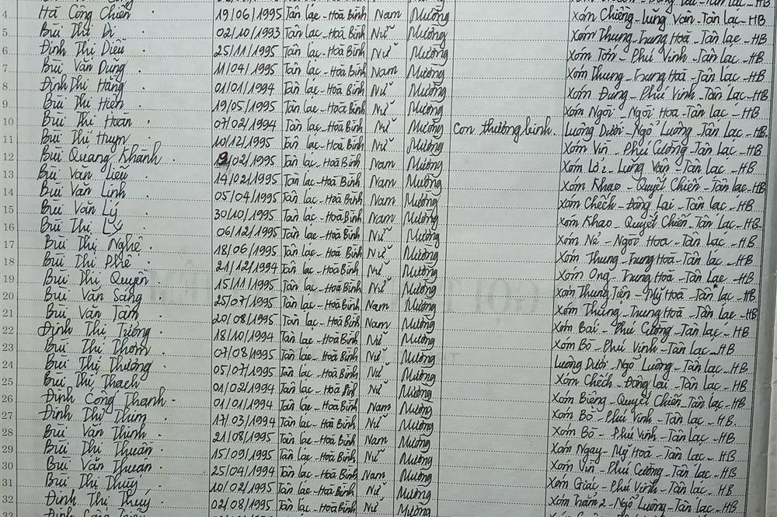 4 Hà Công Chiến 19/06/1995 Tân lạc-Hoà Bình Nam Mường Xóm Chiềng-Lũng Vân-Tân Lạc-HB
5 Bùi Thị Di 02/10/1993 Tân lạc-Hoà Bình Nữ Mường Xóm Thung-Trung Hoà-Tân Lạc-HB
6 Đinh Thị Diều 25/11/1995 Tân lạc-Hoà Bình Nữ Mường Xóm Tớn-Phú Vinh-Tân Lạc-HB
7 Bùi Văn Dũng 11/04/1995 Tân lạc-Hoà Bình Nam Mường Xóm Thung-Trung Hoà-Tân Lạc-HB
8 Đinh Thị Hằng 01/01/1994 Tân lạc-Hoà Bình Nữ Mường Xóm -Phú Vinh-Tân Lạc-HB
9 Bùi Thị Hiền 19/05/1995 Tân lạc-Hoà Bình Nữ Mường Xóm Ngòi-Ngòi Hoa-Tân Lạc-HB
10 Bùi Thị Hoàn 07/02/1994 Tân lạc-Hoà Bình Nữ Mường Con thương binh. Lương Dưới-Ngổ Lương-Tân Lạc-HB
11 Bùi Thị Huyn 10/12/1995 Tân lạc-Hoà Bình Nữ Mường Xóm Vín-Phú Cường-Tân Lạc-HB
12 Bùi Quang Khánh 02/1995 Tân lạc-Hoà Bình Nam Mường Xóm -Lũng Vân-Tân Lạc-HB
13 Bùi Văn Liễu 14/02/1995 Tân lạc-Hoà Bình Nam Mường Xóm Khao-Quyết Chiến-Tân Lạc-HB
14 Bùi Văn Linh 05/04/1995 Tân lạc-Hoà Bình Nam Mường Xóm Chếch-Đông Lai-Tân Lạc-HB
15 Bùi Văn Lý 30/10/1995 Tân lạc-Hoà Bình Nam Mường Xóm Khao-Quyết Chiến-Tân Lạc-HB
16 Bùi Thị Lý 06/12/1995 Tân lạc-Hoà Bình Nữ Mường Xóm Nẻ-Ngòi Hoa-Tân Lạc-HB
17 Bùi Thị Nghề 18/06/1995 Tân lạc-Hoà Bình Nữ Mường Xóm Thung-Trung Hoà-Tân Lạc-HB
18 Bùi Thị Phê 21/12/1994 Tân lạc-Hoà Bình Nữ Mường Xóm Ong-Trung Hoà-Tân Lạc-HB
19 Bùi Thị Quyên 15/11/1995 Tân lạc-Hoà Bình Nữ Mường Xóm Thung -Mỹ Hoà-Tân Lạc-HB
20 Bùi Văn Sáng 25/07/1995 Tân lạc-Hoà Bình Nam Mường Xóm Thung-Trung Hoà-Tân Lạc-HB
21 Bùi Văn Tám 20/08/1995 Tân lạc-Hoà Bình Nam Mường Xóm Bái-Phú Cường-Tân Lạc-HB
22 Đinh Thị Tường 18/10/1994 Tân lạc-Hoà Bình Nữ Mường Xóm Bò-Phú Vinh-Tân Lạc-HB
23 Bùi Thị Thơm 07/08/1995 Tân lạc-Hoà Bình Nữ Mường Lương Dưới-Ngổ Lương-Tân Lạc-HB
24 Bùi Thị Thương 05/07/1995 Tân lạc-Hoà Bình Nữ Mường Xóm Chếch-Đông Lai-Tân Lạc-HB
25 Bùi Thị Thạch 01/02/1994 Tân lạc-Hoà Bình Nữ Mường Xóm Biệng-Quyết Chiến-Tân Lạc-HB
26 Đinh Công Thanh 01/01/1994 Tân lạc-Hoà Bình Nam Mường Xóm Bò-Phú Vinh-Tân Lạc-HB
27 Đinh Thị Thìm 17/03/1994 Tân lạc-Hoà Bình Nữ Mường Xóm Bò-Phú Vinh-Tân Lạc-HB
28 Bùi Văn Thịnh 21/08/1995 Tân lạc-Hoà Bình Nam Mường Xóm Ngay-Mỹ Hoà-Tân Lạc-HB
29 Bùi Thị Thuấn 15/09/1995 Tân lạc-Hoà Bình Nữ Mường Xóm Vín-Phú Cường-Tân Lạc-HB
30 Bùi Văn Thuận 25/04/1994 Tân lạc-Hoà Bình Nam Mường Xóm Giác-Phú Vinh-Tân Lạc-HB
31 Bùi Thị Thuý 10/02/1995 Tân lạc-Hoà Bình Nữ Mường Xóm Trăm 2-Ngổ Lương-Tân Lạc-HB
32 Đinh Thị Thuý 02/08/1995 Tân lạc-Hoà Bình Nữ Mường